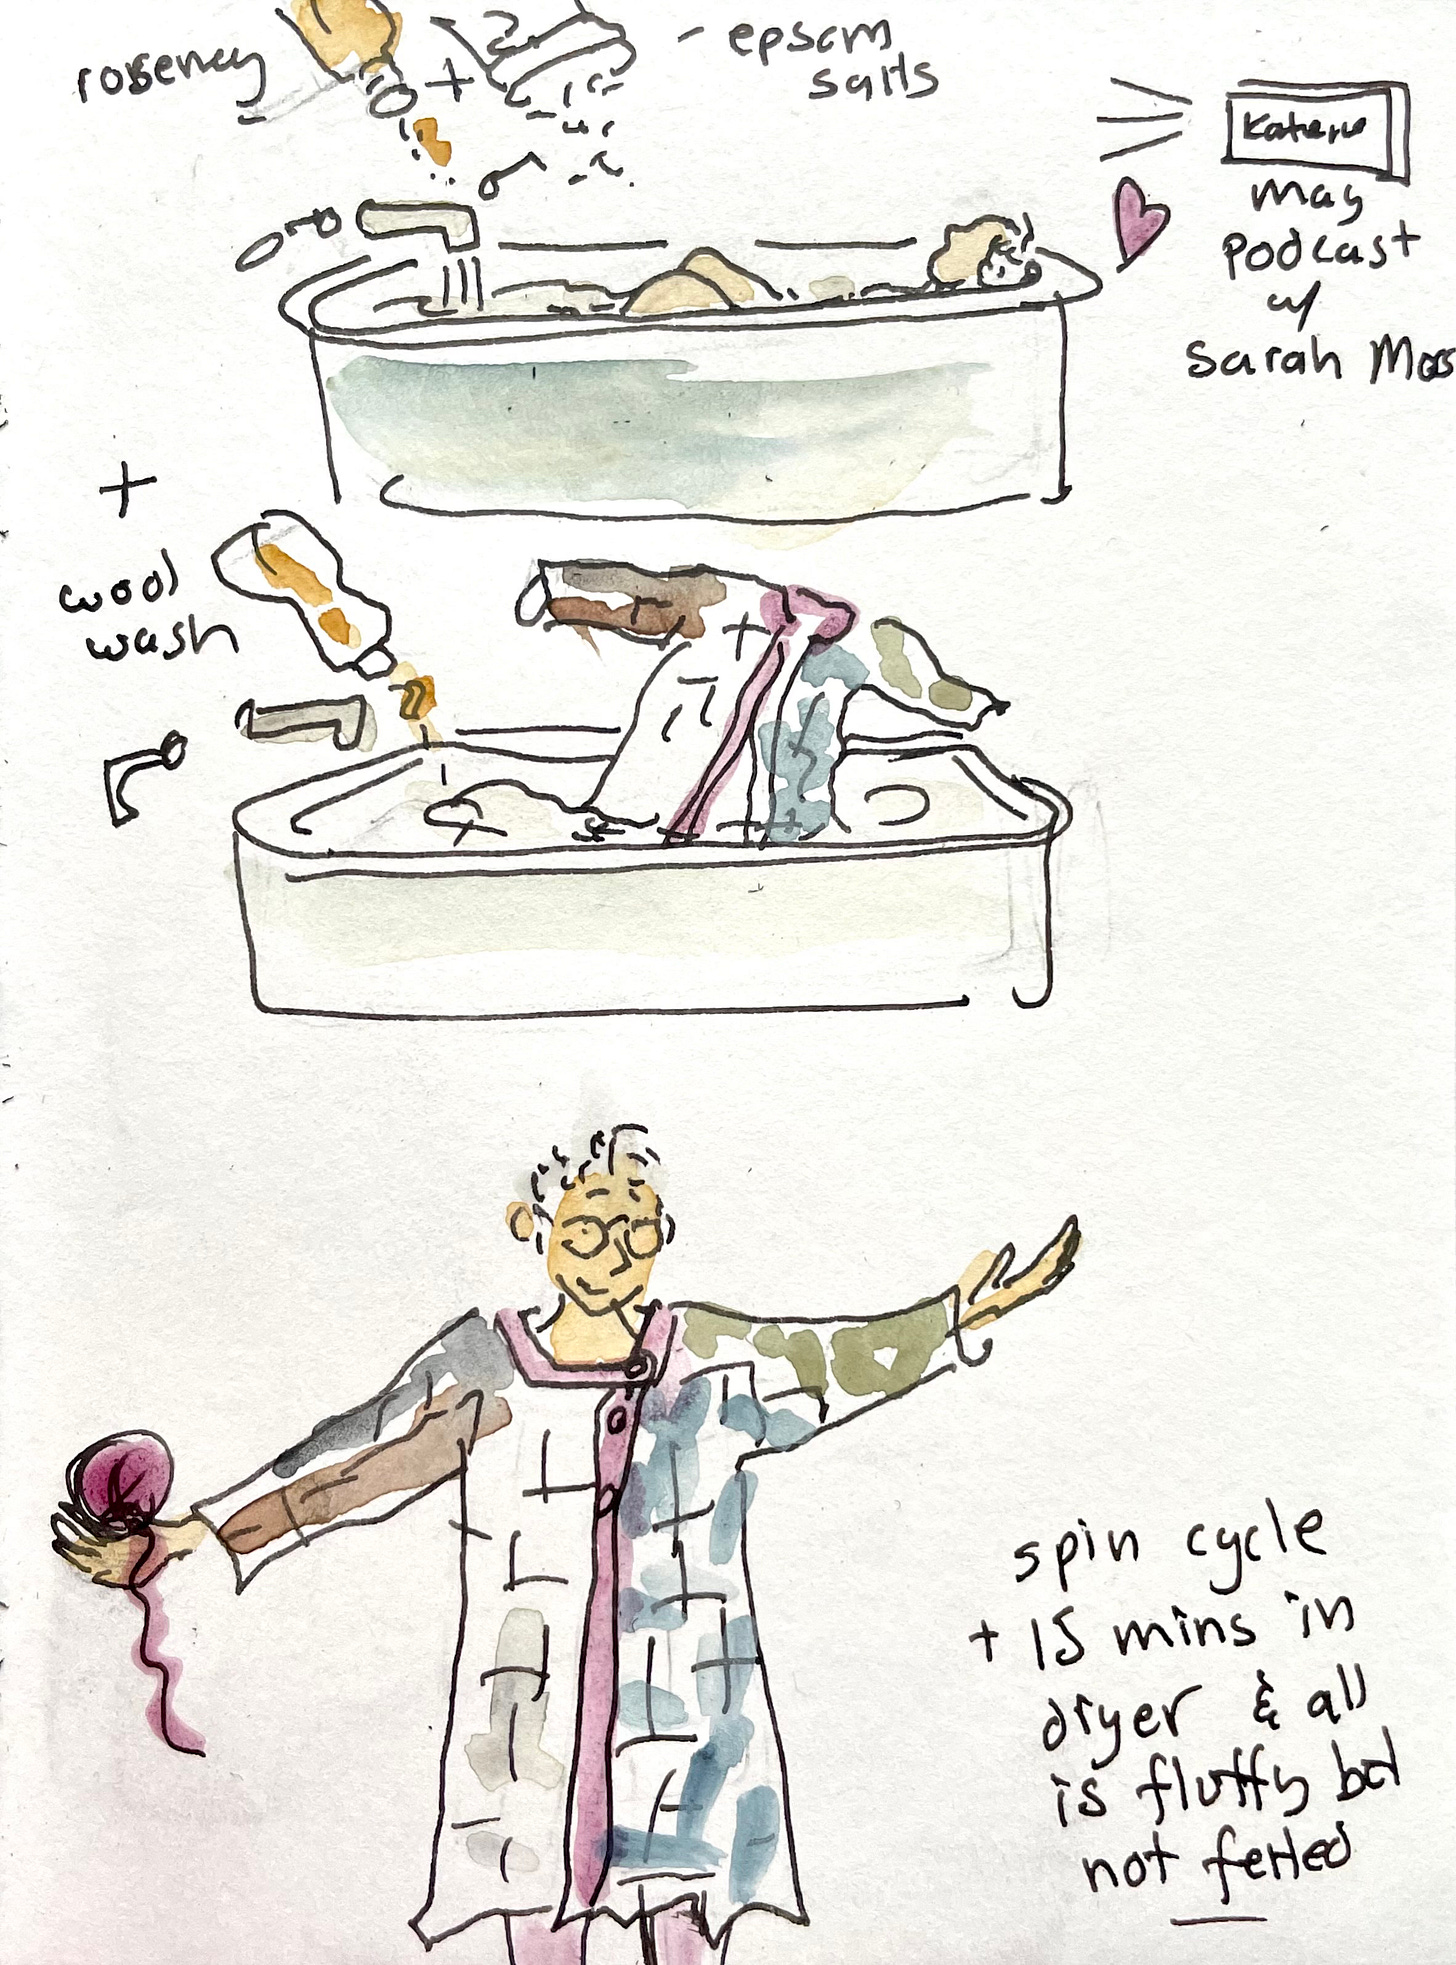 +
- epsom
salts
May
podcast
w/
Sarah Moss
+
wool
wash
spin cycle
+ 15 mins in
dryer & all
is fluffy but
not felted